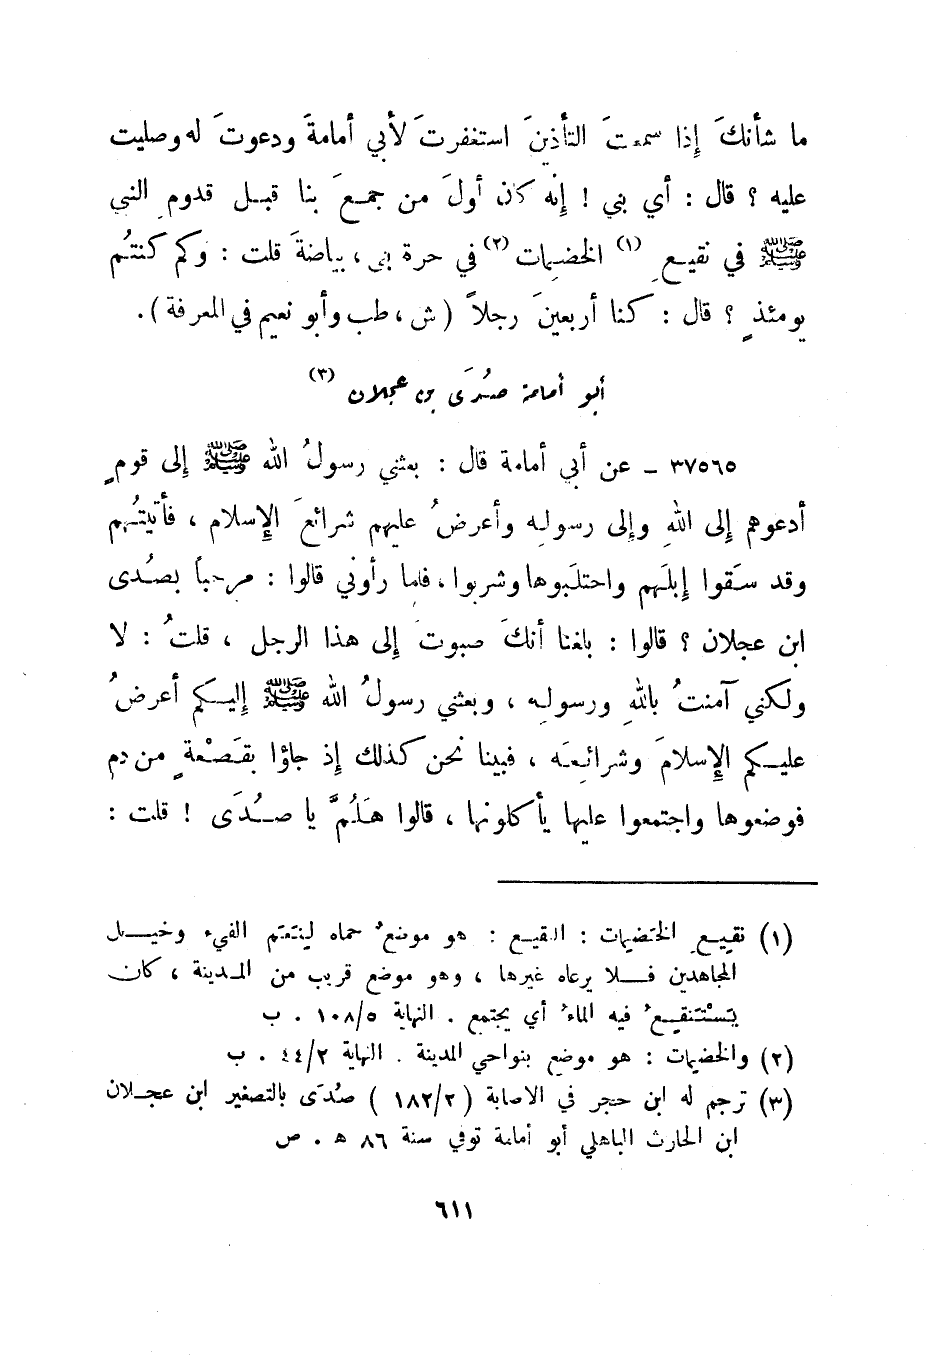 ما شأنكَ إذا سمعتَ التأذينَ استغفرتَ لأبي أمامةَ ودعوتَ له وصليت
عليه ؟ قال : أي بني ! إنه كان أولَ من جمعَ بنا قبل قدومِ النبي
ﷺ في نقيعِ (١) الخضيمات (٢) في حرة بني بياضةَ قلت : وكم كنتُم
يومئذٍ ؟ قال : كنا أربعينَ رجلاً ( ش ، طب وأبو نعيم في المعرفة ) .
أبو أمامة صُدَى بن عجلان (٣)
٣٧٥٦٥ ـ عن أبي أمامة قال : بعثني رسولُ الله ﷺ إلى قومٍ
أدعوهم إلى اللهِ وإلى رسوله وأعرضُ عليهم شرائعَ الإسلام ، فأتيتُهم
وقد سَقوا إبلَهم واحتلَبوها وشربوا ، فلما رأوني قالوا : مرحباً بصُدى
ابن عجلان ؟ قالوا : بلغنا أنكَ صبوتَ إلى هذا الرجل ، قلتُ : لا
ولكني آمنتُ باللهِ ورسوله ، وبعثني رسولُ الله ﷺ إليكم أعرضُ
عليكم الإسلامَ وشرائعَه ، فبينا نحن كذلك إذ جاؤا بقَصْعةٍ من دم
فوضعوها واجتمعوا عليها يأكلونها ، قالوا هَلُمَّ يا صُدَى ! قلت :
(١) نقيع الخضيمات : النقيع : هو موضعُ حماه لِنَعَم الفيء وخيل
المجاهدين فلا يرعاه غيرها ، وهو موضع قريب من المدينة ، كان
يَسْتَنقِعُ فيه الماءُ أي يجتمع . النهاية ١٠٨/٥ . ب
(٢) والخضيمات : هو موضع بنواحي المدينة . النهاية ٤٤/٢ . ب
(٣) ترجم له ابن حجر في الاصابة ( ١٨٢/٢ ) صُدَى بالتصغير ابن عجلان
ابن الحارث الباهلي أبو أمامة توفي سنة ٨٦ ه . ص
٦١١